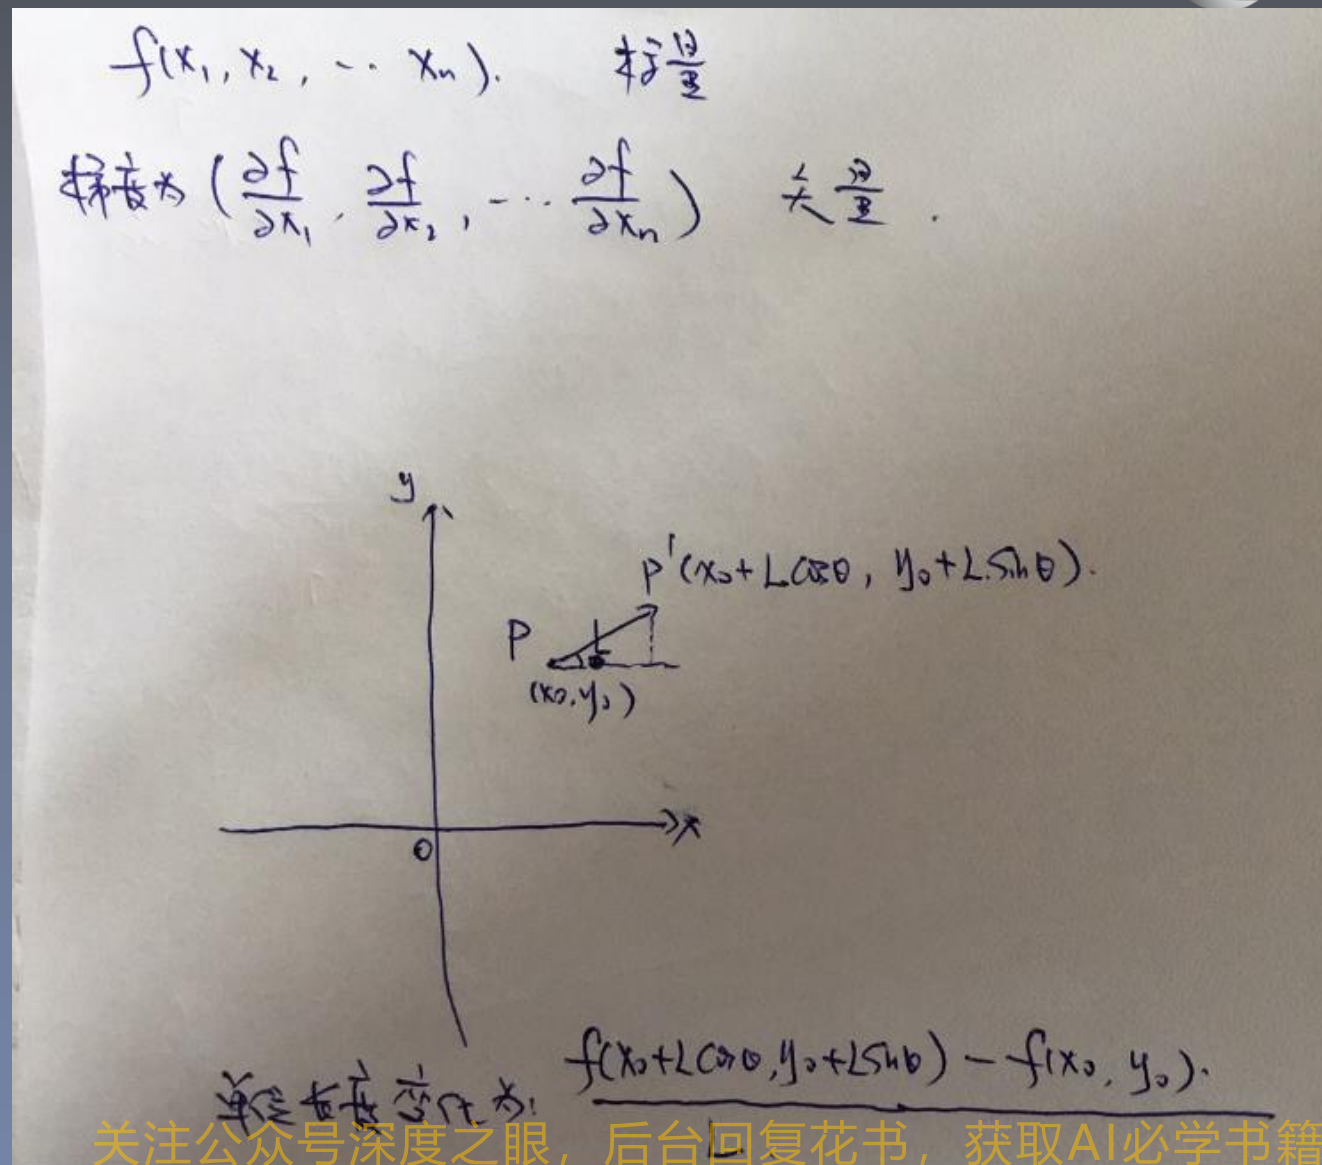 f(x₁, x₂, ··· xₙ). 标量
梯度为 (∂f/∂x₁, ∂f/∂x₂, ··· ∂f/∂xₙ) 矢量.
y
P'(x₀+Lcosθ, y₀+L.sinθ).
P
L
(x₀,y₀)
x
O
单位长度变化为: f(x₀+Lcosθ,y₀+Lsinθ) − f(x₀, y₀). / L
关注公众号深度之眼，后台回复花书，获取AI必学书籍